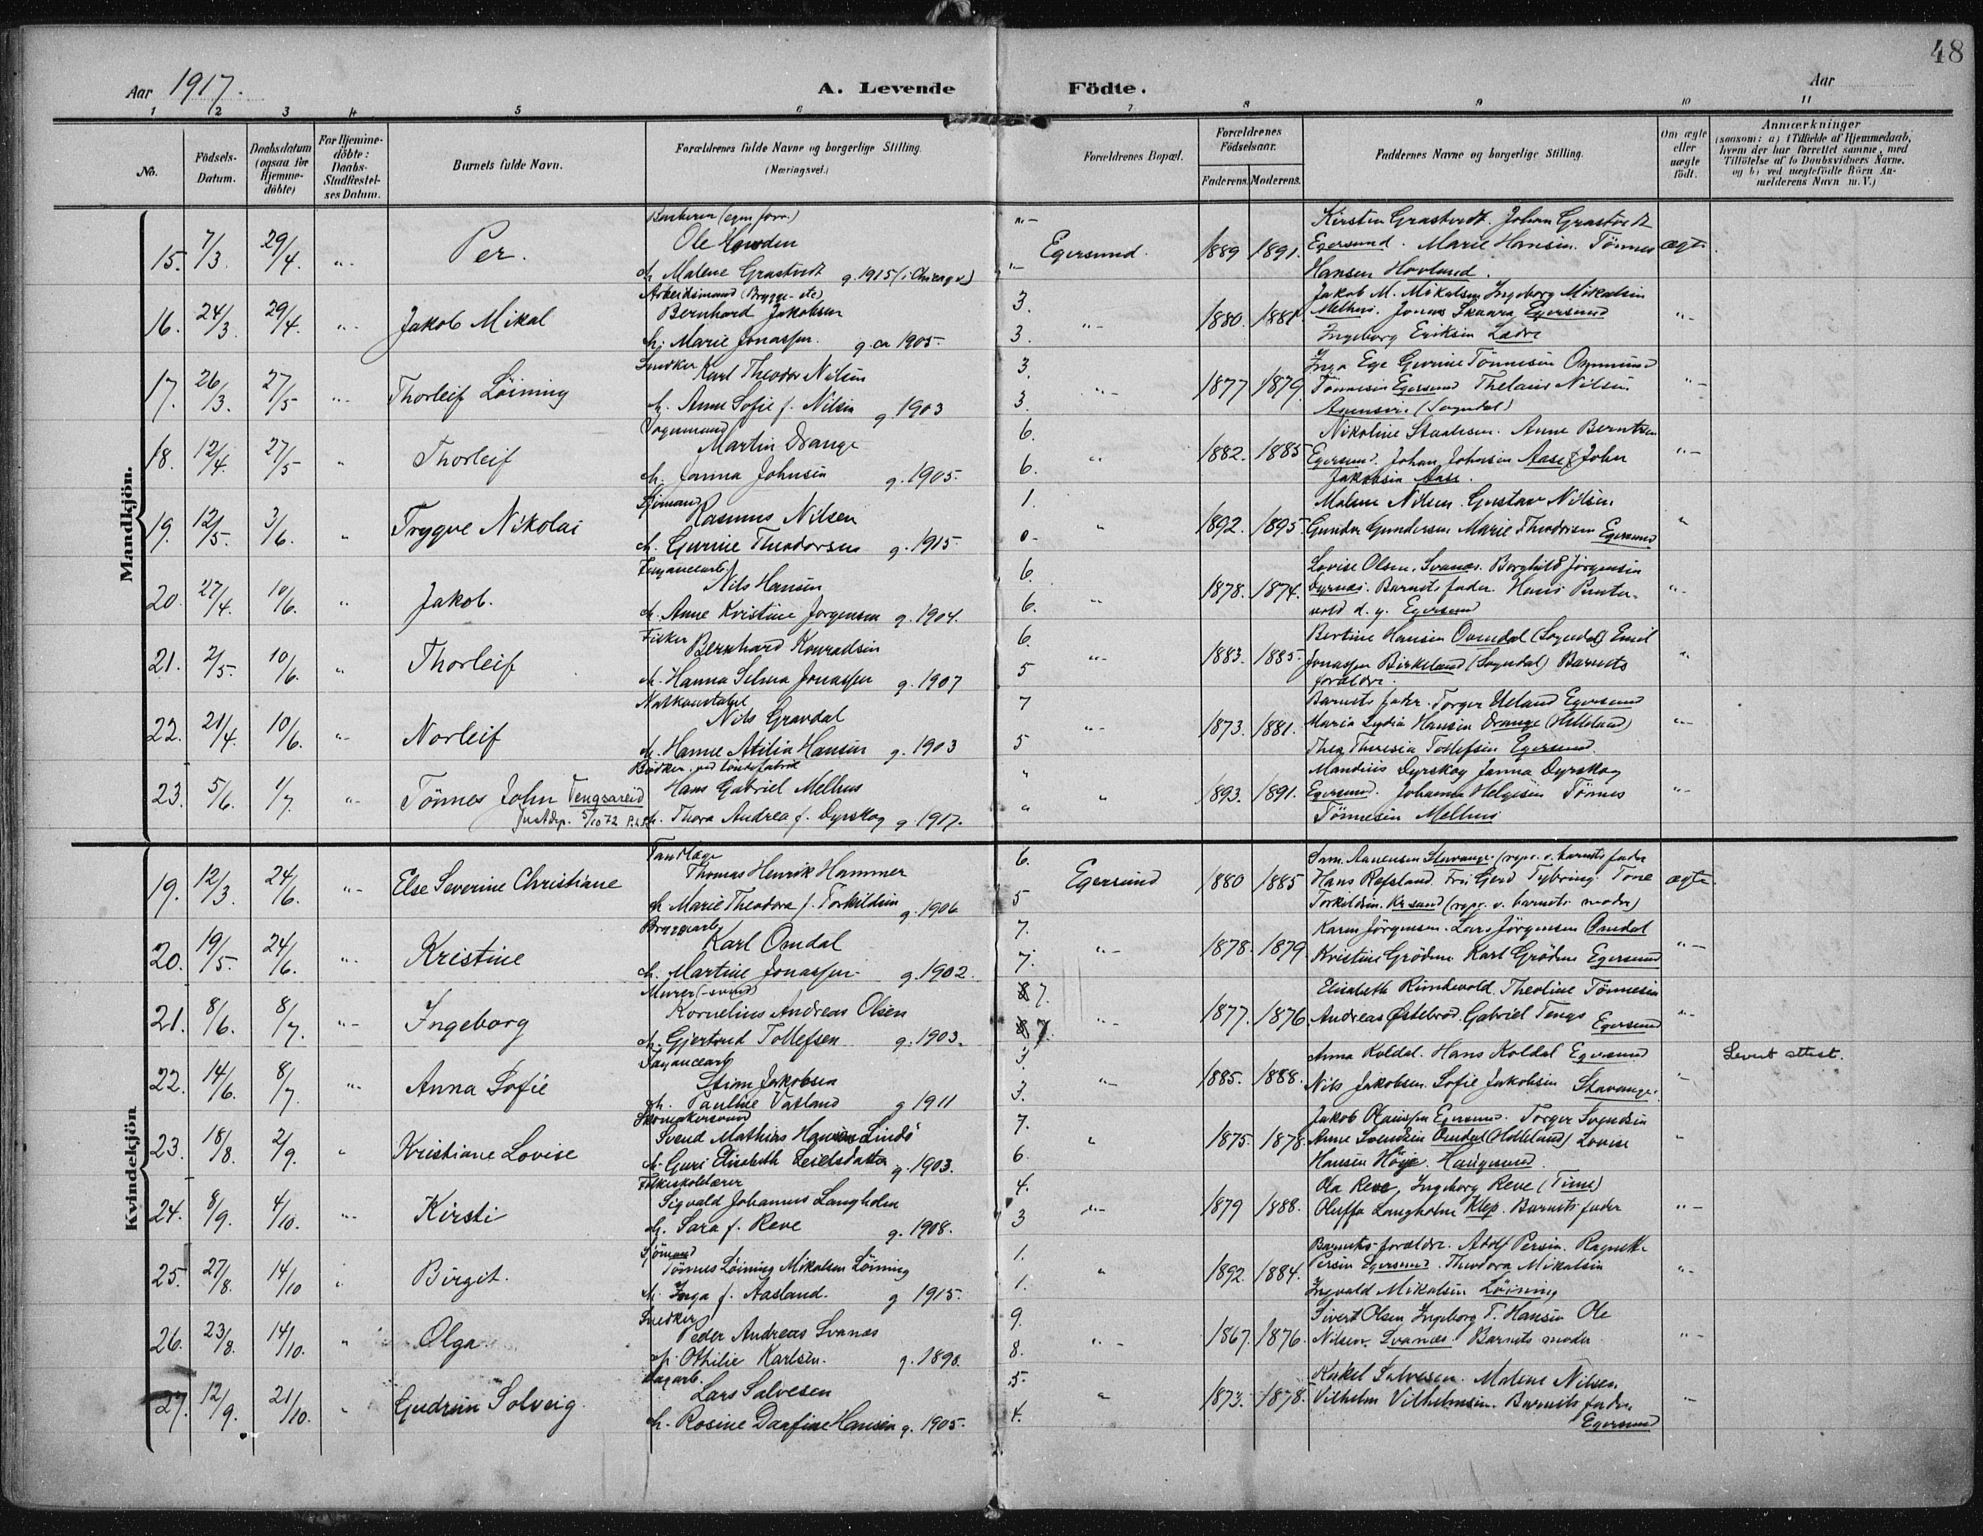 48
Aar 1917.
A. Levende Födte.
Aar
1 2 3 4 5 6 7 8 9 10 11
No.
Födsels-Datum.
Daabsdatum (ogsaa for Hjemme-döbte)
For Hjemme-döbte: Daabs-Stadfæstel-ses Datum.
Barnets fulde Navn.
Forældrenes fulde Navne og borgerlige Stilling. (Næringsvei.)
Forældrenes Bopæl.
Forældrenes Födselsaar.
Faderens. Moderens.
Faddernes Navne og borgerlige Stilling.
Om ægte eller uægte födt.
Anmærkninger
(saasom: a) i Tilfælde af Hjemmedaab, hvem der har forrettet samme, med Tilföielse af to Daabsvidners Navne. og b) ved uægtefödte Börn An-melderens Navn m. V.)
Mandkjön.
Barberer (egen forr.) "-
Kirsten Grastvedt. Johan Grastvedt
15. 7/3. 29/4. "- Per. Ole Egersund. 1889 1891. Egersund. Marie Hansen. Tönnes ægte.
h. Malene Grastvedt g. 1915 (i Chicago) "- Hansen Hovland.
Arbeidsmand (Brygge- etc) 3. Jakob M. Mikalsen Ingeborg Mikalsen
16. 24/3. 29/4. "- Jakob Mikal Bernhard Jakobsen "- 1880. 1881. Melhus. Jonas Skaara Egersund "-
h. Marie Jonassen. g. ca 1905. 3. Ingeborg Eriksen Ladre
Snedker 3. Inga Ege Gurine Tönnesen Ommund
17. 26/3. 27/5 "- Thorleif Löining Karl Theodor Nilsen "- 1877 1879 Tönnesen Egersund Nilsen "-
h. Anne Sofie f. Nilsen g. 1903 3. (Sogndal)
6. Nikoline Anne Berntsen
18. 12/4. 27/5 " Thorleif Martin Orange " 1882. 1885 Egersund. Johan Johnsen Aase & John "-
h. Janna Johnsen g. 1905. 6. Jakobsen Aase.
Sjömand 1. Malene Nilsen Gustav Nilsen
19. 12/5. 3/6. " Trygve Nikolai Rasmus Nilsen " 1892. 1895. Gundersen Marie Theodorsen Egersund "
h. Gurine Theodorsen g. 1915. 0-
Fayancearb 6. Lovise Olsen. Svanæs. Borghild Jörgensen
20. 27/4. 10/6. " Jakob. Nils Hansen " 1878. 1874. Dyrnæs. Barnets fader. Hans Punter- "-
h. Anne Kristine Jörgensen g. 1904. 6. vold d. y. Egersund
Fisker 6. Bertine Hansen Omdal (Sogndal) Emil
21. 2/5. 10/6. " Thorleif Bernhard Konradsen "- 1883. 1885. Jonassen Birkeland (Sogndal) Barnets "
h. Hanna Selma Jonassen g. 1907 5 forældre.
Natkonstabel 7 Barnets fader. Torger Ueland Egersund
22. 21/4. 10/6. "- Norleif Nils Gravdal "- 1873. 1881. Maria Lydia Hansen Orange (Helleland) "-
h. Hanne Atilia Hansen g. 1903 5 Thea Theresia Tollefsen Egersund.
Bödker ved töndefabrik " Mandius Dyrskog Janna Dyrskog
23. 5/6. 1/7. "- Tönnes John Tengsareid Hans Gabriel Melhus " 1893. 1891. Egersund. Johanna Helgesen Tönnes "-
Justdep. 5/10 72 h. Thora Andrea f. Dyrskog g. 1917. " Tönnesen Melhus
Kvindekjön
Tandlæge 6. Sam. Aanensen Stavanger (repr. v. barnets fader
19. 12/3. 24/6. "- Else Severine Christiane Thomas Henrik Hammer Egersund 1880 1885 Hans Refsland Frk Gerd Tybring Tone ægte.
h. Marie Theodora f. Torkildsen g. 1906 5 Torkildsen. Krsand (repr. v. barnets moder)
Bryggearb 7. Karen Jörgensen. Lars Jörgensen Omdal
20. 19/5. 24/6. "- Kristine Karl Omdal "- 1878. 1879. Kristine Grödem Karl Grödem Egersund "-
h. Martine Jonassen. g. 1902. 7.
Murer (-svend) 7. Elisabeth Theoline Tönnesen
21. 8/6. 8/7. "- Ingeborg Kornelius Andreas Olsen "- 1877. 1876 Andreas Östebrød. Gabriel Tengs Egersund "-
h. Gjertrud Tollefsen g. 1903. 7.
Fayancearb 3. Anna Koldal. Hans Koldal Egersund Levert attest.
22. 14/6. 8/7. "- Anna Sofie Stian Jakobsen "- 1885. 1888. Nils Jakobsen. Sofie Jakobsen Stavanger. "-
h. Pauline Vatland g 1911 3.
Skomakersvend 7. Jakob Olaussen Egersund. Torger Svendsen
23. 18/8. 2/9. " Kristiane Lovise Svend Mathias Hansen Lindö " 1875. 1878. Anne Svendsen Omdal (Helleland) Lovise "
h. Guri Elisabeth g. 1903. 6. Hansen Höye. Haugesund.
Folkeskolelærer 4. Ola Reve, Ingeborg Reve (Time)
24. 8/9. 4/10. "- Kirsti Sigvald Johannes Langholm "- 1879 1888. Oluffa Langholm Klep. Barnets fader "-
h. Sara f. Reve g. 1908. 3
Sjömand 1. Barnets forældre. Adolf Persen. Ragnetle
25. 27/8. 14/10 " Birgit. Tönnes Löining Mikalsen Löining " 1892. 1884. Persen Egersund. Theodora Mikalsen "-
h. Inga f. Aasland. g 1915. 1. Ingvald Mikalsen Löining
Snedker 9. Sivert Olsen Ingeborg T. Hansen Ole
26. 23/8. 14/10. " Olga Peder Andreas Svanæs "- 1867. 1876. Nilsen. Svanæs. Barnets moder "-
h. Othilie Karlsen. g. 1890. 8.
Dagarb. 5. Salvesen. Malene Nilsen.
27. 12/9. 21/10. " Gudrun Solveig Lars Salvesen " 1873. 1878. Vilhelm Vilhelmsen. Barnets fader "-
h. Rosine Darfine Hansen g. 1905. 4. Egersund